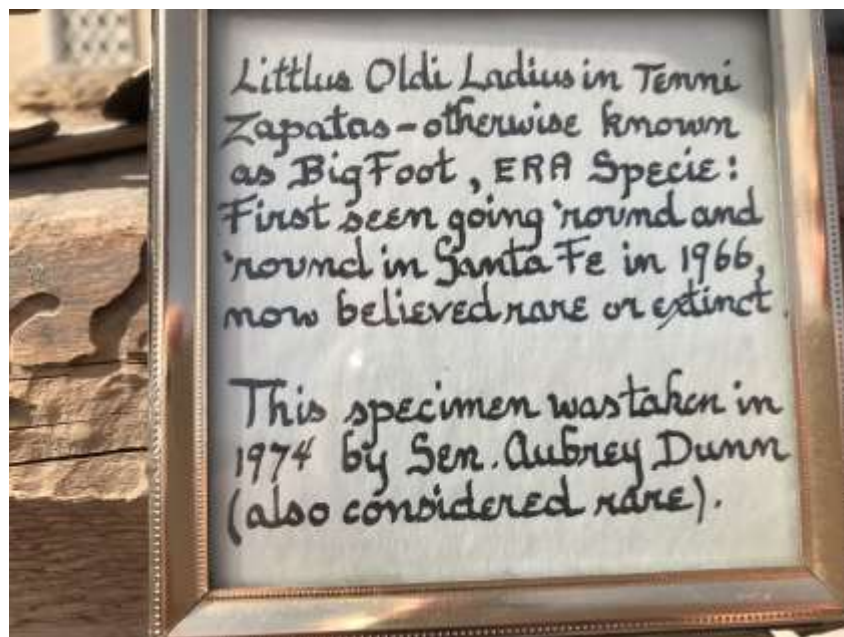 Littlus Oldi Ladius in Tenni
Zapatas - otherwise known
as BigFoot, ERA Specie:
First seen going 'round and
'round in Santa Fe in 1966,
now believed rare or extinct.
This specimen was taken in
1974 by Sen. Aubrey Dunn
(also considered rare).